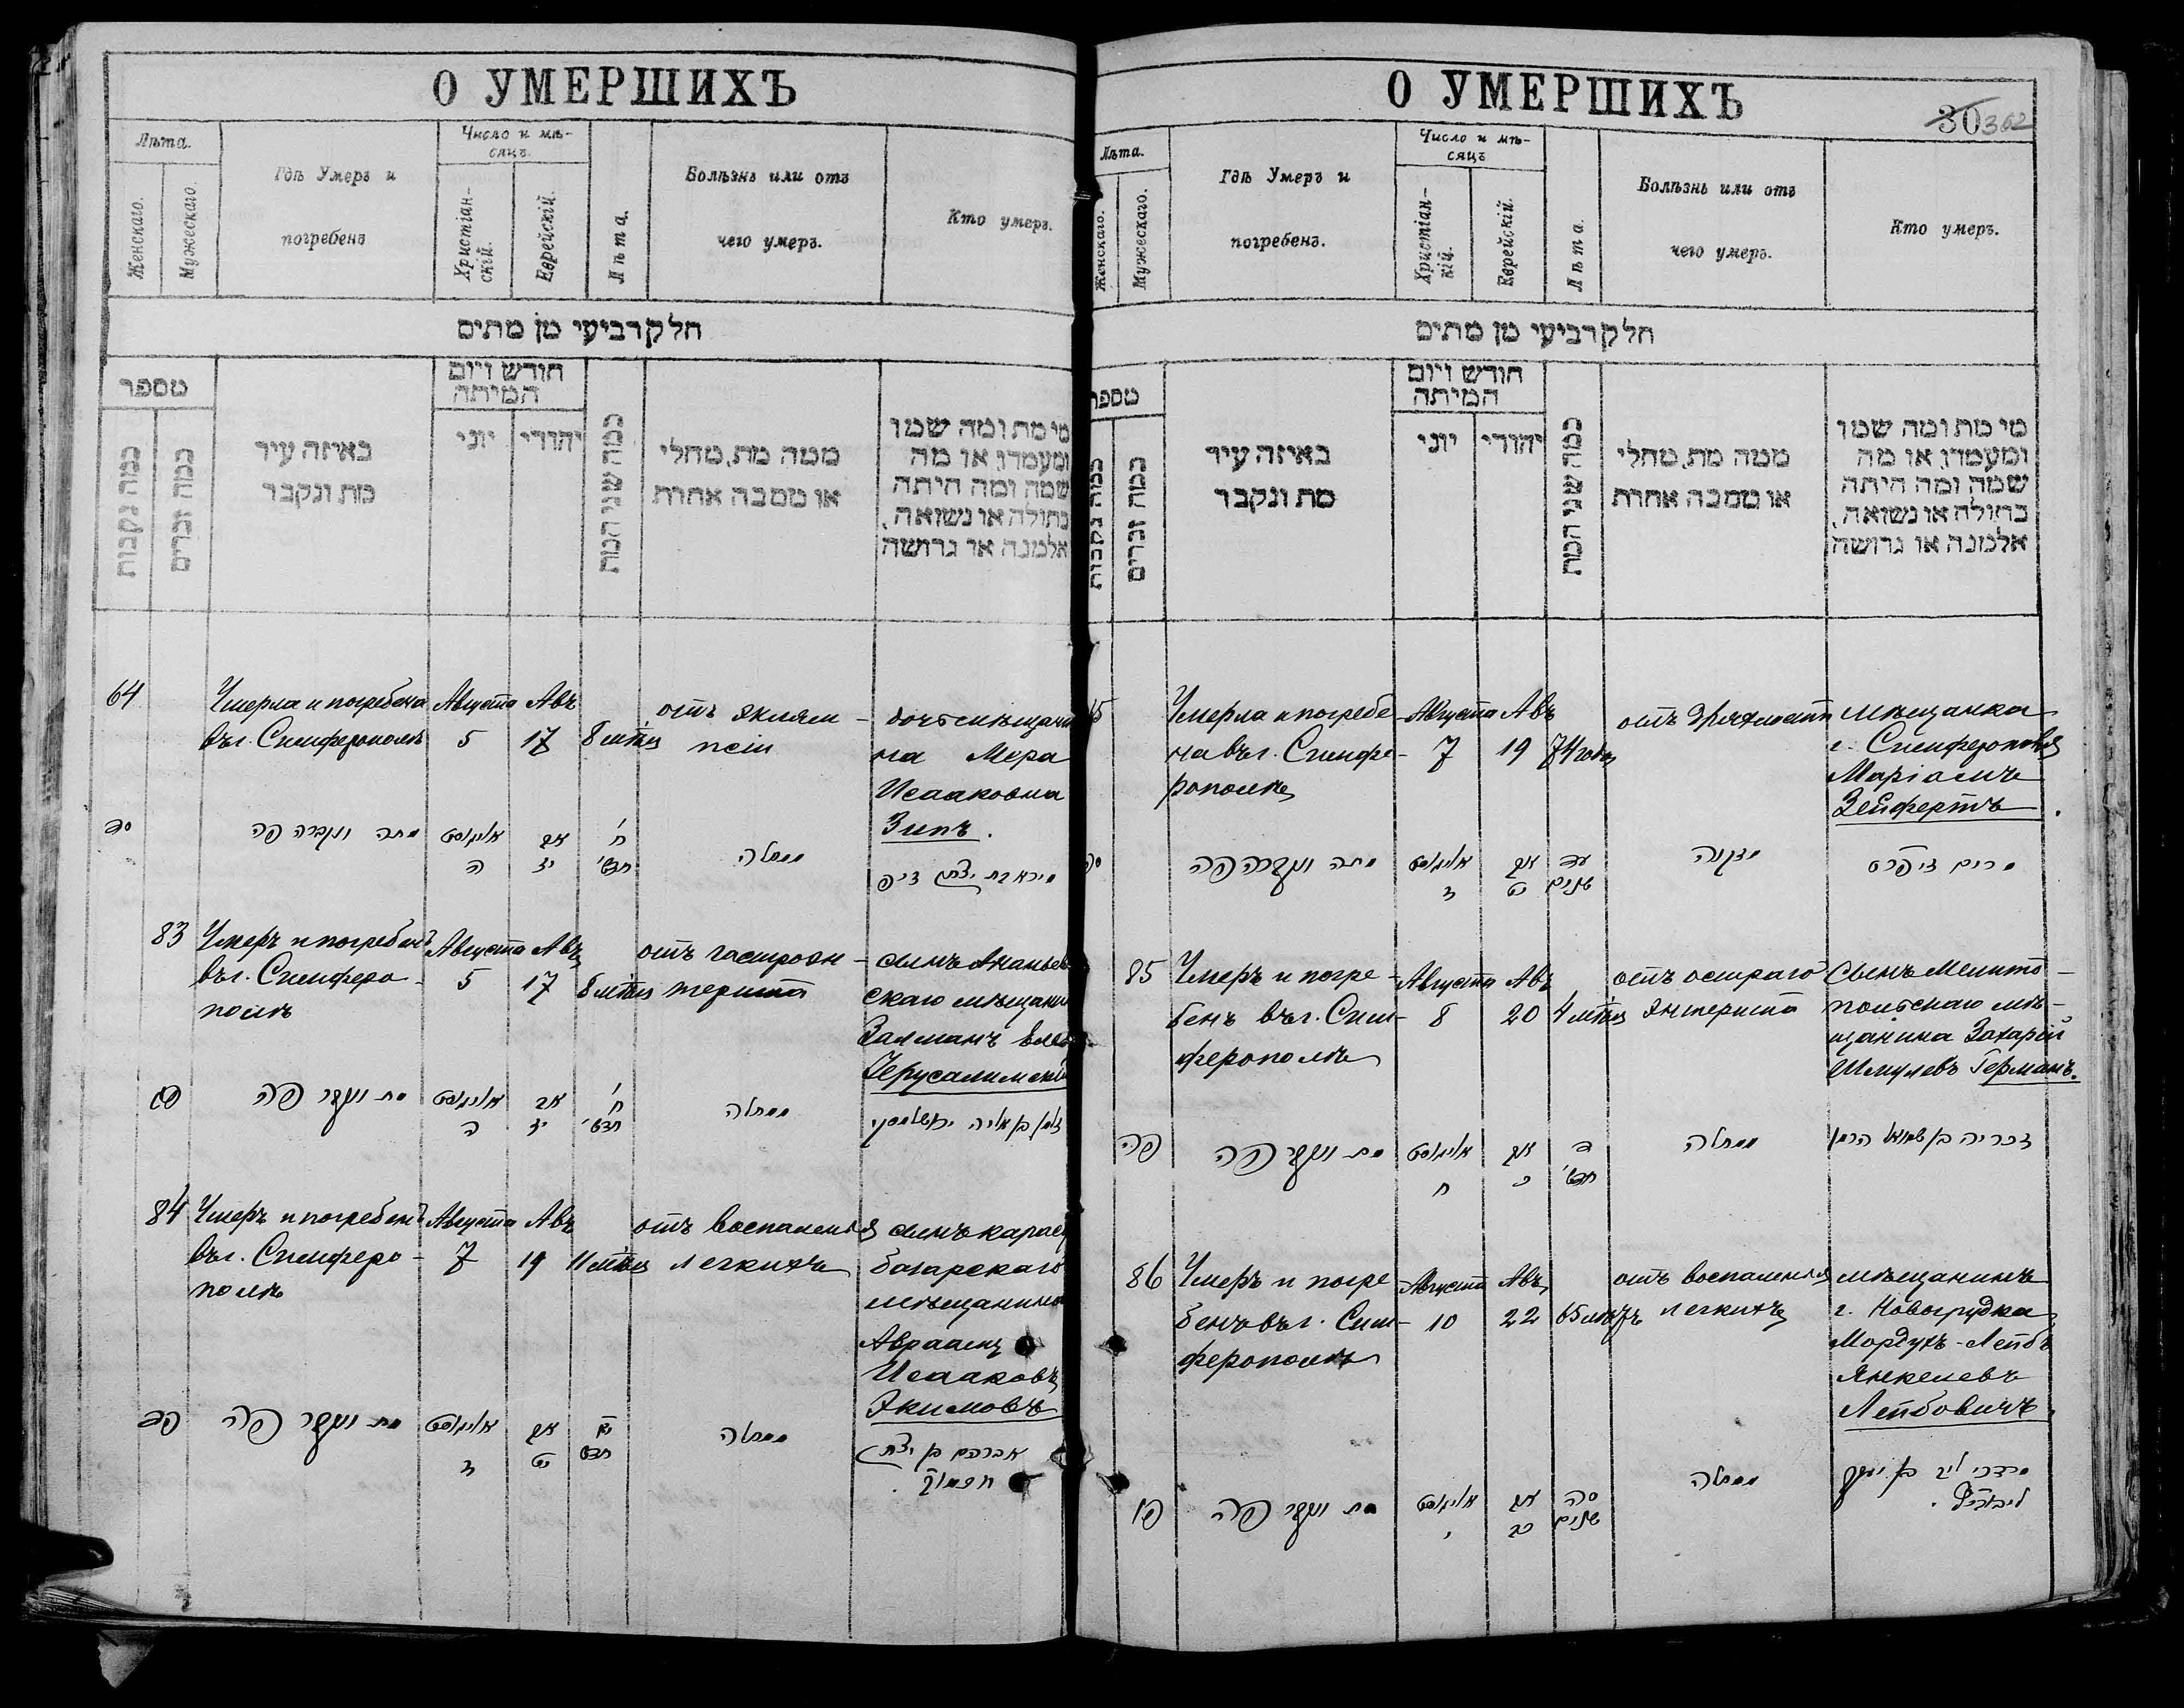 О УМЕРШИХЪ
Лѣта.
Женскаго.
Мужескаго.
Гдѣ Умеръ и
погребенъ
Число и мѣ-
сяцъ.
Христіан-
скій.
Еврейскій.
Лѣта.
Болѣзнь или отъ
чего умеръ.
Кто умеръ.
חלק רביעי מן מתים
מספר
כמה נקבות
כמה זכרים
באיזה עיר
מת ונקבר
חודש ויום
המיתה
יוני
יהודי
כמה שני המת
ממה מת, מחלי
או מסבה אחרת
מי מת ומה שמו
ומעמדו, או מה
שמה ומה היתה
בתולה או נשואה,
אלמנה או גרושה
64
Умерла и погребена
въ г. Симферополѣ
Августа
5
Авъ
17
8 мѣсяц
отъ эклям-
псіи
дочь мѣщани
на Мера
Исааковна
Зипъ.
סד
מתה ונקברה פה
אויגוסט
ה
אב
יז
ח'
חדש'
ממחלה
מירא בת יצחק זיפ
83
Умеръ и погребенъ
въ г. Симферо-
полѣ
Августа
5
Авъ
17
8 мѣсяц
отъ гастроэн-
терита
сынъ Ананьев
скаго мѣщанин
Залманъ
Іерусалимскій
פג
מת ונקבר פה
אויגוסט
ה
אב
יז
ח'
חדש'
ממחלה
זלמן בן אליה ירושלימסקי
84
Умеръ и погребенъ
въ г. Симферо-
полѣ
Августа
7
Авъ
19
11 мѣсяц
отъ воспаленія
легкихъ
сынъ карасу
базарскаго
мѣщанина
Авраамъ
Исааковъ
Экимовъ
פד
מת ונקבר פה
אויגוסט
ז
אב
יט
יא
חדש
ממחלה
אברהם בן יצחק
О УМЕРШИХЪ
30 302
Лѣта.
Женскаго.
Мужескаго.
Гдѣ Умеръ и
погребенъ.
Число и мѣ-
сяцъ
Христіан-
кій.
Еврейскій.
Лѣта.
Болѣзнь или отъ
чего умеръ.
Кто умеръ.
חלק רביעי מן מתים
מספר
כמה נקבות
כמה זכרים
באיזה עיר
מת ונקבר
חודש ויום
המיתה
יוני
יהודי
כמה שני המת
ממה מת, מחלי
או מסבה אחרת
מי מת ומה שמו
ומעמדו, או מה
שמה ומה היתה
בתולה או נשואה,
אלמנה או גרושה
65
Умерла и погребе-
на въ г. Симфе-
рополѣ
Августа
7
Авъ
19
74 года
отъ
мѣщанка
г. Симферополя
Маріамъ
Зейфертъ.
סה
מתה ונקברה פה
אויגוסט
ז
אב
יט
עד
שנים
מזקנה
מרים זייפרט
85
Умеръ и погре-
бенъ въ г. Сим-
ферополѣ
Августа
8
Авъ
20
4 мѣсяц
отъ остраго
энтерита
Сынъ Мелито-
польскаго мѣ-
щанина Захарій
Шмулевъ Германъ.
פה
מת ונקבר פה
אויגוסט
ח
אב
כ
ד
חדש'
ממחלה
זכריה בן שמואל הרמן
86
Умеръ и погре-
бенъ въ г. Сим-
ферополѣ
Августа
10
Авъ
22
65 лѣтъ
отъ воспаленія
легкихъ
мѣщанинъ
г. Новогрудка
Мордухъ-Лейбъ
Янкелевъ
Лейбовичъ.
פו
מת ונקבר פה
אויגוסט
י
אב
כב
סה
שנים
ממחלה
מרדכי ליב בן יעקב
ליבוביץ.